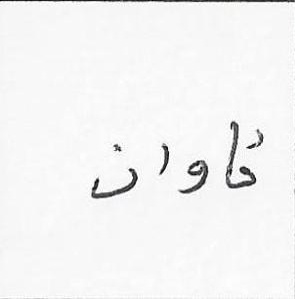 تاوان